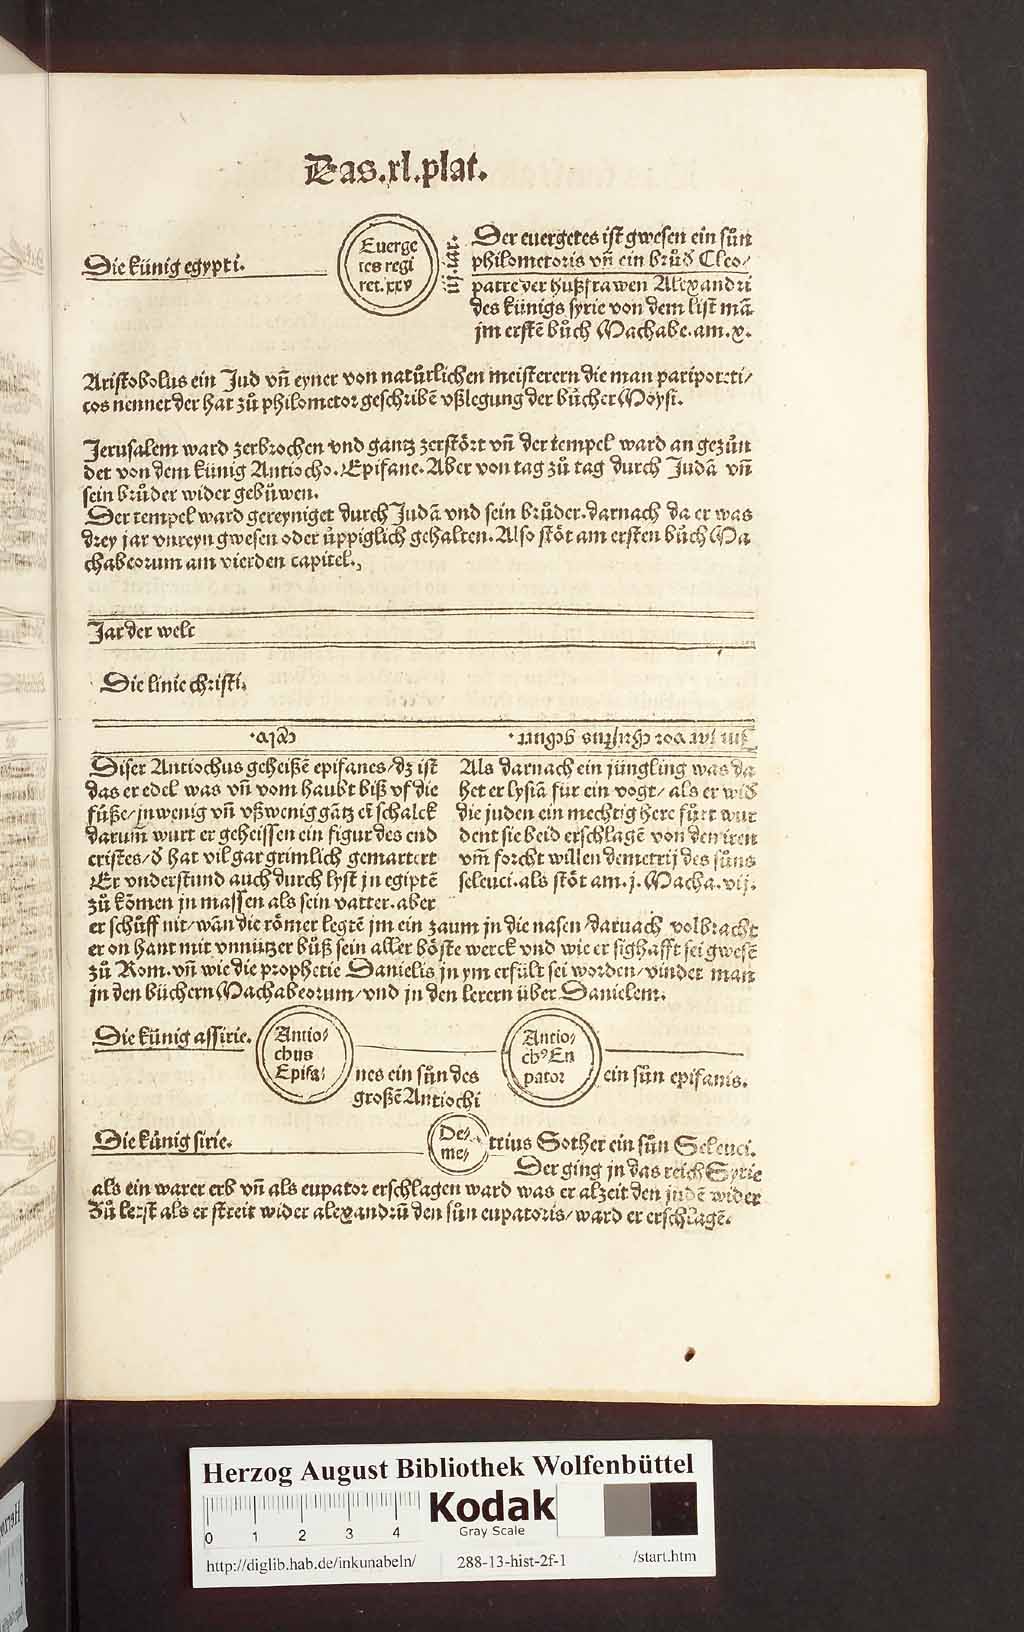 Das.xl.plat.
Die künig egypti.
Euerge
tes regi
ret.xxv
iar.iij.
Der euergetes ist gwesen ein sůn
philometoris vñ ein brůd Cleo/
patre der hußfrawen Alexandri
des künigs syrie von dem list mā
jm erstē bůch Machabe.am.x.
Aristobolus ein Jud vñ eyner von natůrlichen meisteren die man paripoteti/
cos nennet der hat zů philometor geschribē vßlegung der bůcher Moysi.
Jerusalem ward zerbrochen vnd gantz zerstört vñ der tempel ward an gezůn
det von dem künig Antiocho.Epifane.Aber von tag zů tag durch Judā vñ
sein brůder wider gebůwen.
Der tempel ward gereyniget durch Judā vnd sein brůder.darnach da er was
drey jar vnreyn gwesen oder üppiglich gehalten.Also stöt am ersten bůch Ma
chabeorum am vierden capitel.
Jar der welt
Die linie christi.
Jm jar vor christus geburt.
Diser Antiochus geheißē epifanes/dz ist
das er edel was vñ vom haubt biß vf die
füße/jnwenig vñ vßwenig gātz eī schalck
darum̄ wurt er geheissen ein figur des end
cristes/d hat vil gar grimlich gemartert
Er vnderstund auch durch lyst jn egiptē
zů kōmen jn massen als sein vatter.aber
Als darnach ein jüngling was da
het er lysiā für ein vogt/als er wid
die juden ein mechtig here fůrt wur
dent sie beid erschlagē von den iren
vm̄ forcht willen demetrij des sůns
seleuci.als stöt am.j.Macha.vij.
er schůff nit/wān die römer legtē jm ein zaum jn die nasen/darnach volbracht
er on hant mit vnnützer bůß sein aller böste werck vnd wie er sighafft sei gwesē
zů Rom.vñ wie die prophetie Danielis jn ym erfült sei worden/vindet man
jn den büchern Machabeorum/vnd jn den lerern über Danielem.
Die künig assirie.
Antio/
chus
Epifa/
nes ein sůn des
großē Antiochi
Antio/
chꝰ Eu
pator
ein sůn epifanis.
Die künig sirie.
De/
me/
trius Sother ein sůn Seleuci.
Der ging jn das reich Syrie
als ein warer erb vñ als eupator erschlagen ward was er alzeit den judē wider
Zů letst als er streit wider alexandrū den sůn eupatoris/ward er erschlagē.
Herzog August Bibliothek Wolfenbüttel
0 1 2 3 4
Kodak
Gray Scale
http://diglib.hab.de/inkunabeln/
288-13-hist-2f-1
/start.htm